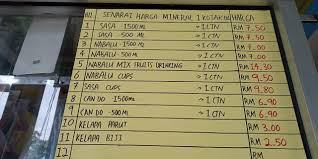 NO SENARAI HARGA MINERAL 1 KOTAK HARGA
1 SASA -1500ML → 1 CTN RM 7.50
2 SASA -500 ML → 1 CTN RM 7.50
3 NABALU -1500ML → 1 CTN RM 7.00
4 NABALU -500ML → 1 CTN RM 7.00
5 NABALU MIX FRUITS DRINKING → 1 CTN RM 14.30
6 NABALU CUPS → 1 CTN RM 9.50
7 SASA CUPS → 1 CTN RM 9.80
8 CAN DO -1500ML → 1 CTN RM 6.90
9 CAN DO -500ML → 1 CTN RM 6.90
10 KELAPA PARUT RM 3.00
11 KELAPA BIJI RM 2.50
12 RM